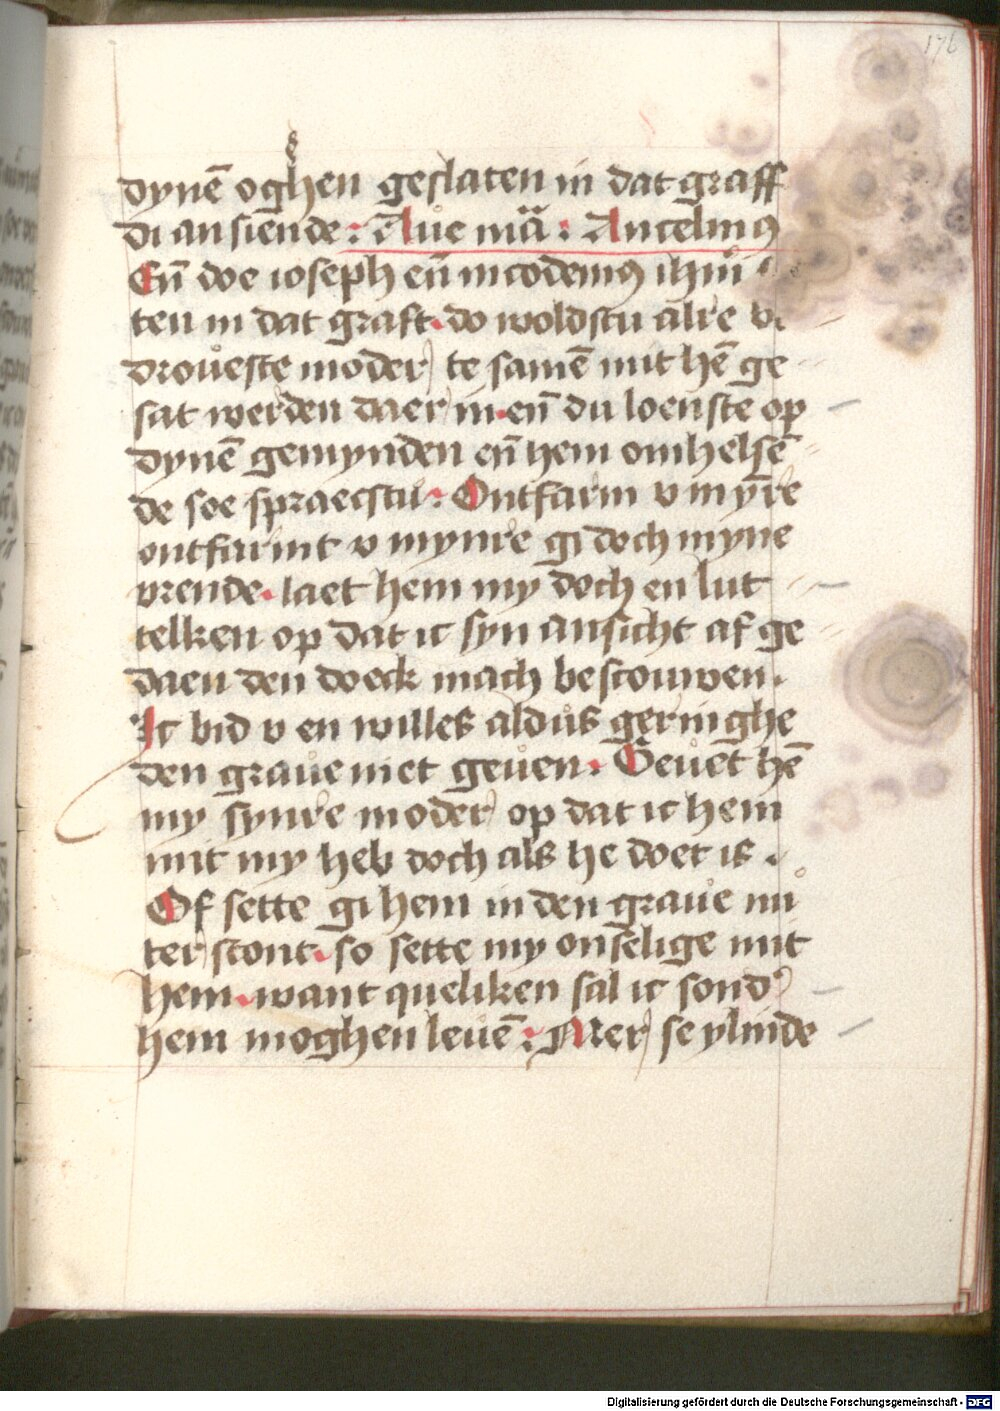 176
dynē oghen geslaten in dat graff
di an siende : Aue mā : Ancelmꝰ
En̄ doe ioseph en̄ nicodemꝰ ihm̄
ten in dat graft. do woldstu alre be
droueste moder te samē mit hē ge
sat werden daer in. en̄ du loenste op
dynē gemynden en̄ hem omhelsē
de soe spraecstu : Ontfarm v mynre
ontfarmt v mynre gi doch myne
vrende. laet hem my doch en lut
telken op dat ic syn ansicht af ge
daen den doeck mach bescouwen.
Ic bid v en willes aldus geringhe
den graue niet geuen. Geuēt hē
my synre moder op dat ic hem
mit my heb doch als he doet is.
Of sette gi hem in den graue mi
ter stont. so sette my onselige mit
hem. want queliken sal ic sond'
hem moghen leuē : Mer se ylinde
Digitalisierung gefördert durch die Deutsche Forschungsgemeinschaft - DFG